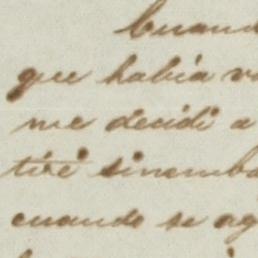 Cuand
que habia v
me decidi a
tiré sinemba
cuando se ag